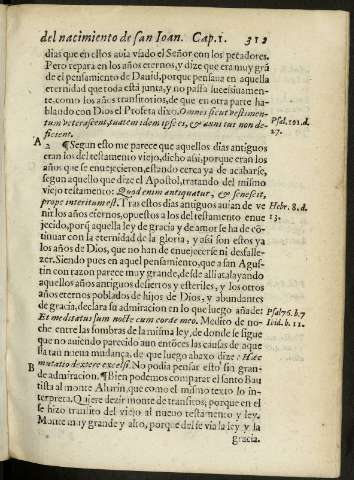 del nacimiento de san Ioan. Cap.1. 312
dias que en ellos auia vsado el Señor con los pecadores.
Pero repara en los años eternos, y dize que era muy grã
de el pensamiento de Dauid, porque pensaua en aquella
eternidad que toda está junta, y no passa sucessiuamen-
te, como los años transitorios, de que en otra parte ha-
blando con Dios el Profeta dixo. Omnes sicut vestimen-
tum veterascent, tu autem idem ipse es, & anni tui non de-
ficient.
Psal. 101. d.
27.
A 2 ¶ Segun esto me parece que aquellos dias antiguos
eran los del testamento viejo, dicho assi, porque eran los
años que se enuejecieron, estando cerca ya de acabarse,
segun aquello que dize el Apostol, tratando del mismo
viejo testamento: Quod enim antiquatur, & senescit,
prope interitum est. Tras estos dias antiguos auian de ve
nir los años eternos, opuestos a los del testamento enue
jecido, porq̃ aquella ley de gracia y de amor se ha de cõ-
Hebr. 8. d.
13.
tinuar con la eternidad de la gloria, y assi son estos ya
los años de Dios, que no han de enuejecerse ni desfalle-
zer. Siendo pues en aquel pensamiento, que a san Agus-
tin con razon parece muy grande, desde alli atalayando
aquellos años antiguos desiertos y esteriles, y los otros
años eternos poblados de hijos de Dios, y abundantes
de gracia, declara su admiracion en lo que luego añade:
Et meditatus sum nocte cum corde meo. Medito de no-
che entre las sombras de la misma ley, de donde se sigue
Psal. 76. b. 7
Ibid. b. 11.
que no auiendo parecido aun entõces las causas de aque
sta tan nueua mudança, de que luego abaxo dize: Hæc
mutatio dexteræ excelsi. No podia pensar esto sin gran-
B de admiracion. ¶ Bien podemos comparar el santo Bau
tista al monte Abarin, que como el mismo texto lo in-
terpreta, Quiere dezir monte de transitos, porque en el
se hizo transito del viejo al nueuo testamento y ley.
Monte muy grande y alto, porque del se via la ley y la
gracia.